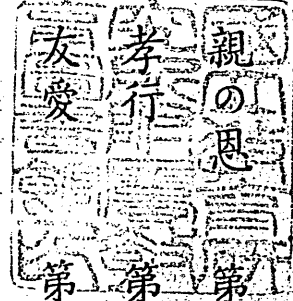 親の恩 第
孝行 第
友愛 第